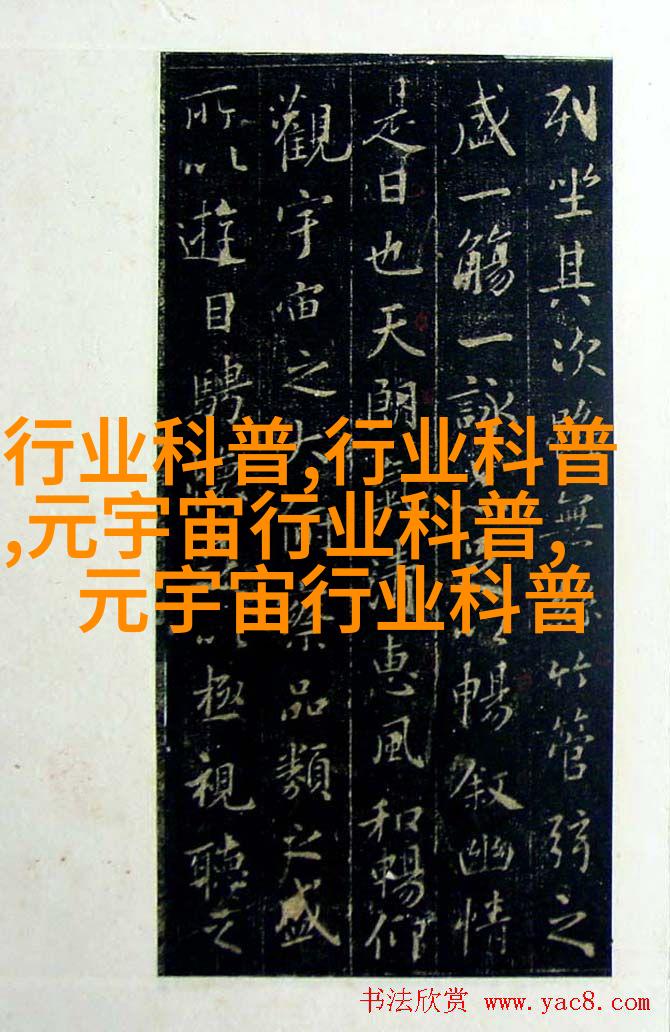 列坐其次無竹管弦之
盛一觴一詠暢叙幽情
是日也天朗惠風和暢仰
觀宇宙之大品類之盛
所以遊目騁極視聽之
行业科普,行业科普
,元宇宙行业科普,
元宇宙行业科普
书法欣赏 www.yac8.com